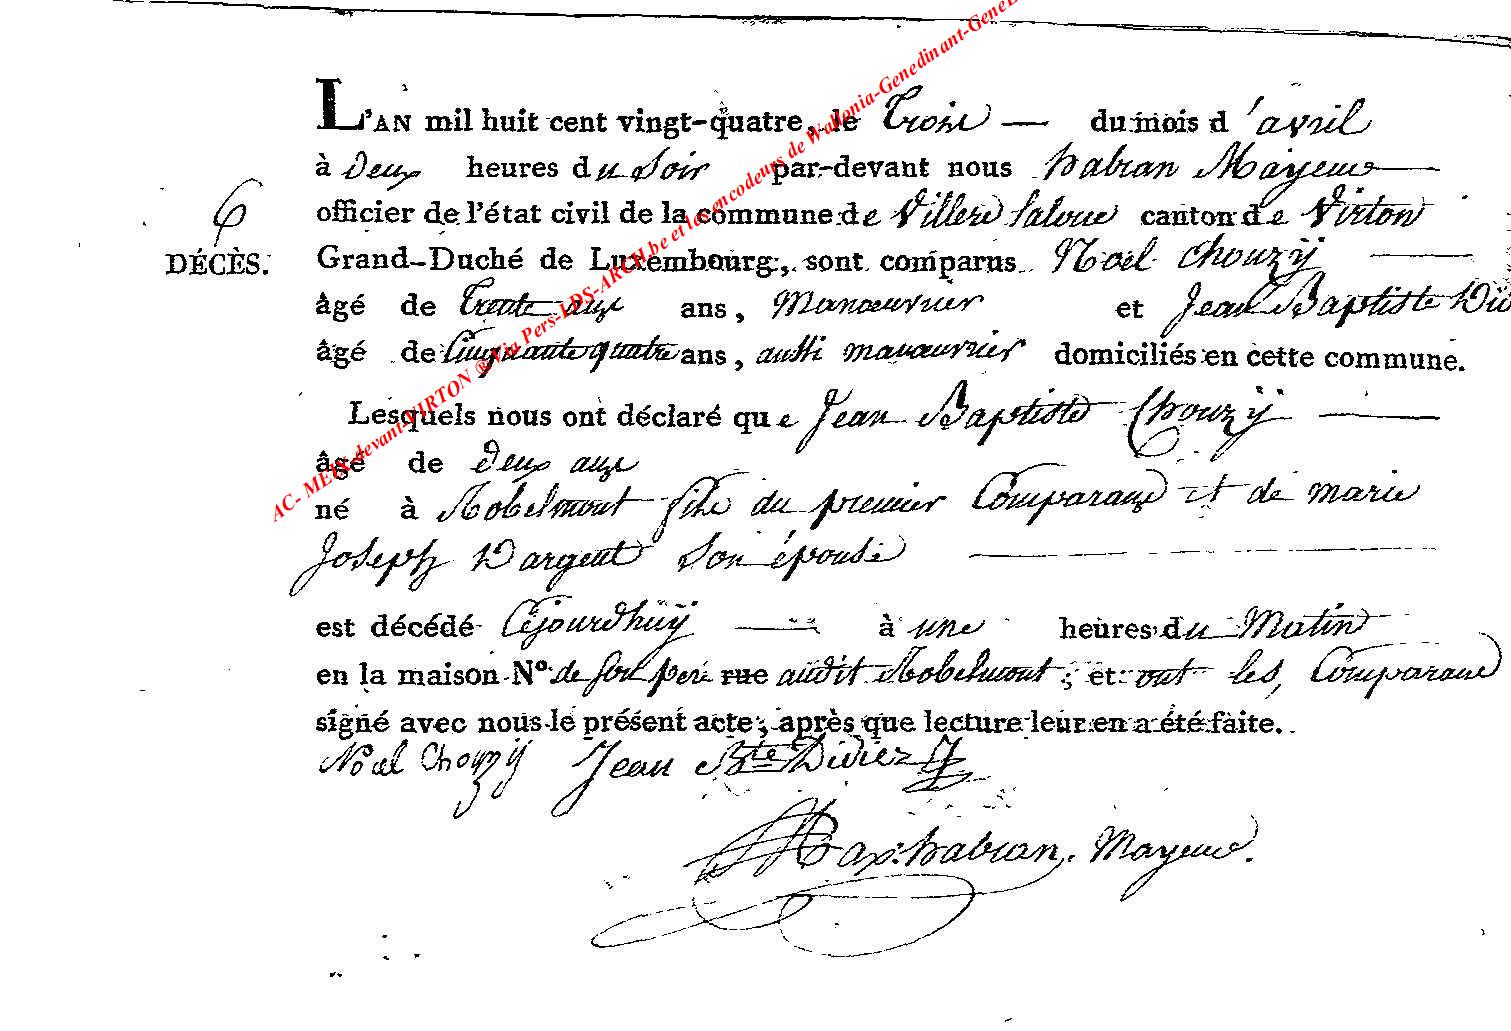 L'AN mil huit cent vingt-quatre, le Trois — du mois d'avril
à Deux heures du Soir par-devant nous habran Mayeur
officier de l'état civil de la commune de Villers laloue canton de Virton
6
DÉCÈS.
Grand-Duché de Luxembourg, sont comparus Noel Chouzÿ
âgé de Trente ans, Manœuvrier et Jean Baptiste
âgé de Cinquante quatre ans, aussi manœuvrier domiciliés en cette commune.
Lesquels nous ont déclaré que Jean Baptiste Chouzÿ
âgé de Deux ans
né à Robelmont fils du premier Comparans et de marie
Joseph Dargent Son épouse
est décédé Cejourdhuÿ à une heures du Matin
en la maison N.º de son pere rue audit Robelmont, et ont les, Comparans
signé avec nous le présent acte, après que lecture leur en a été faite.
Noel Chouzÿ Jean Bte Didier
habran. Mayeur.
AC- MEIX-devant-VIRTON ® Via Pers-LDS-ARCH.be et les encodeurs de Wallonia-Genedinant-